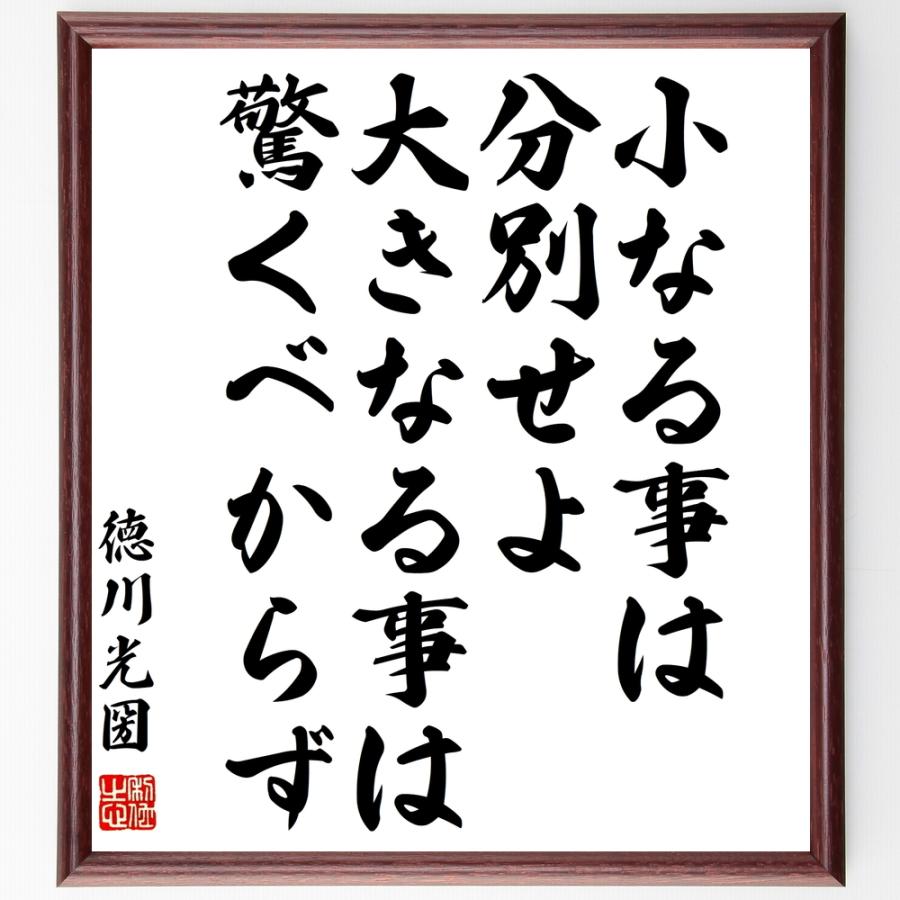 小なる事は
分別せよ
大きなる事は
驚くべからず
徳川光圀